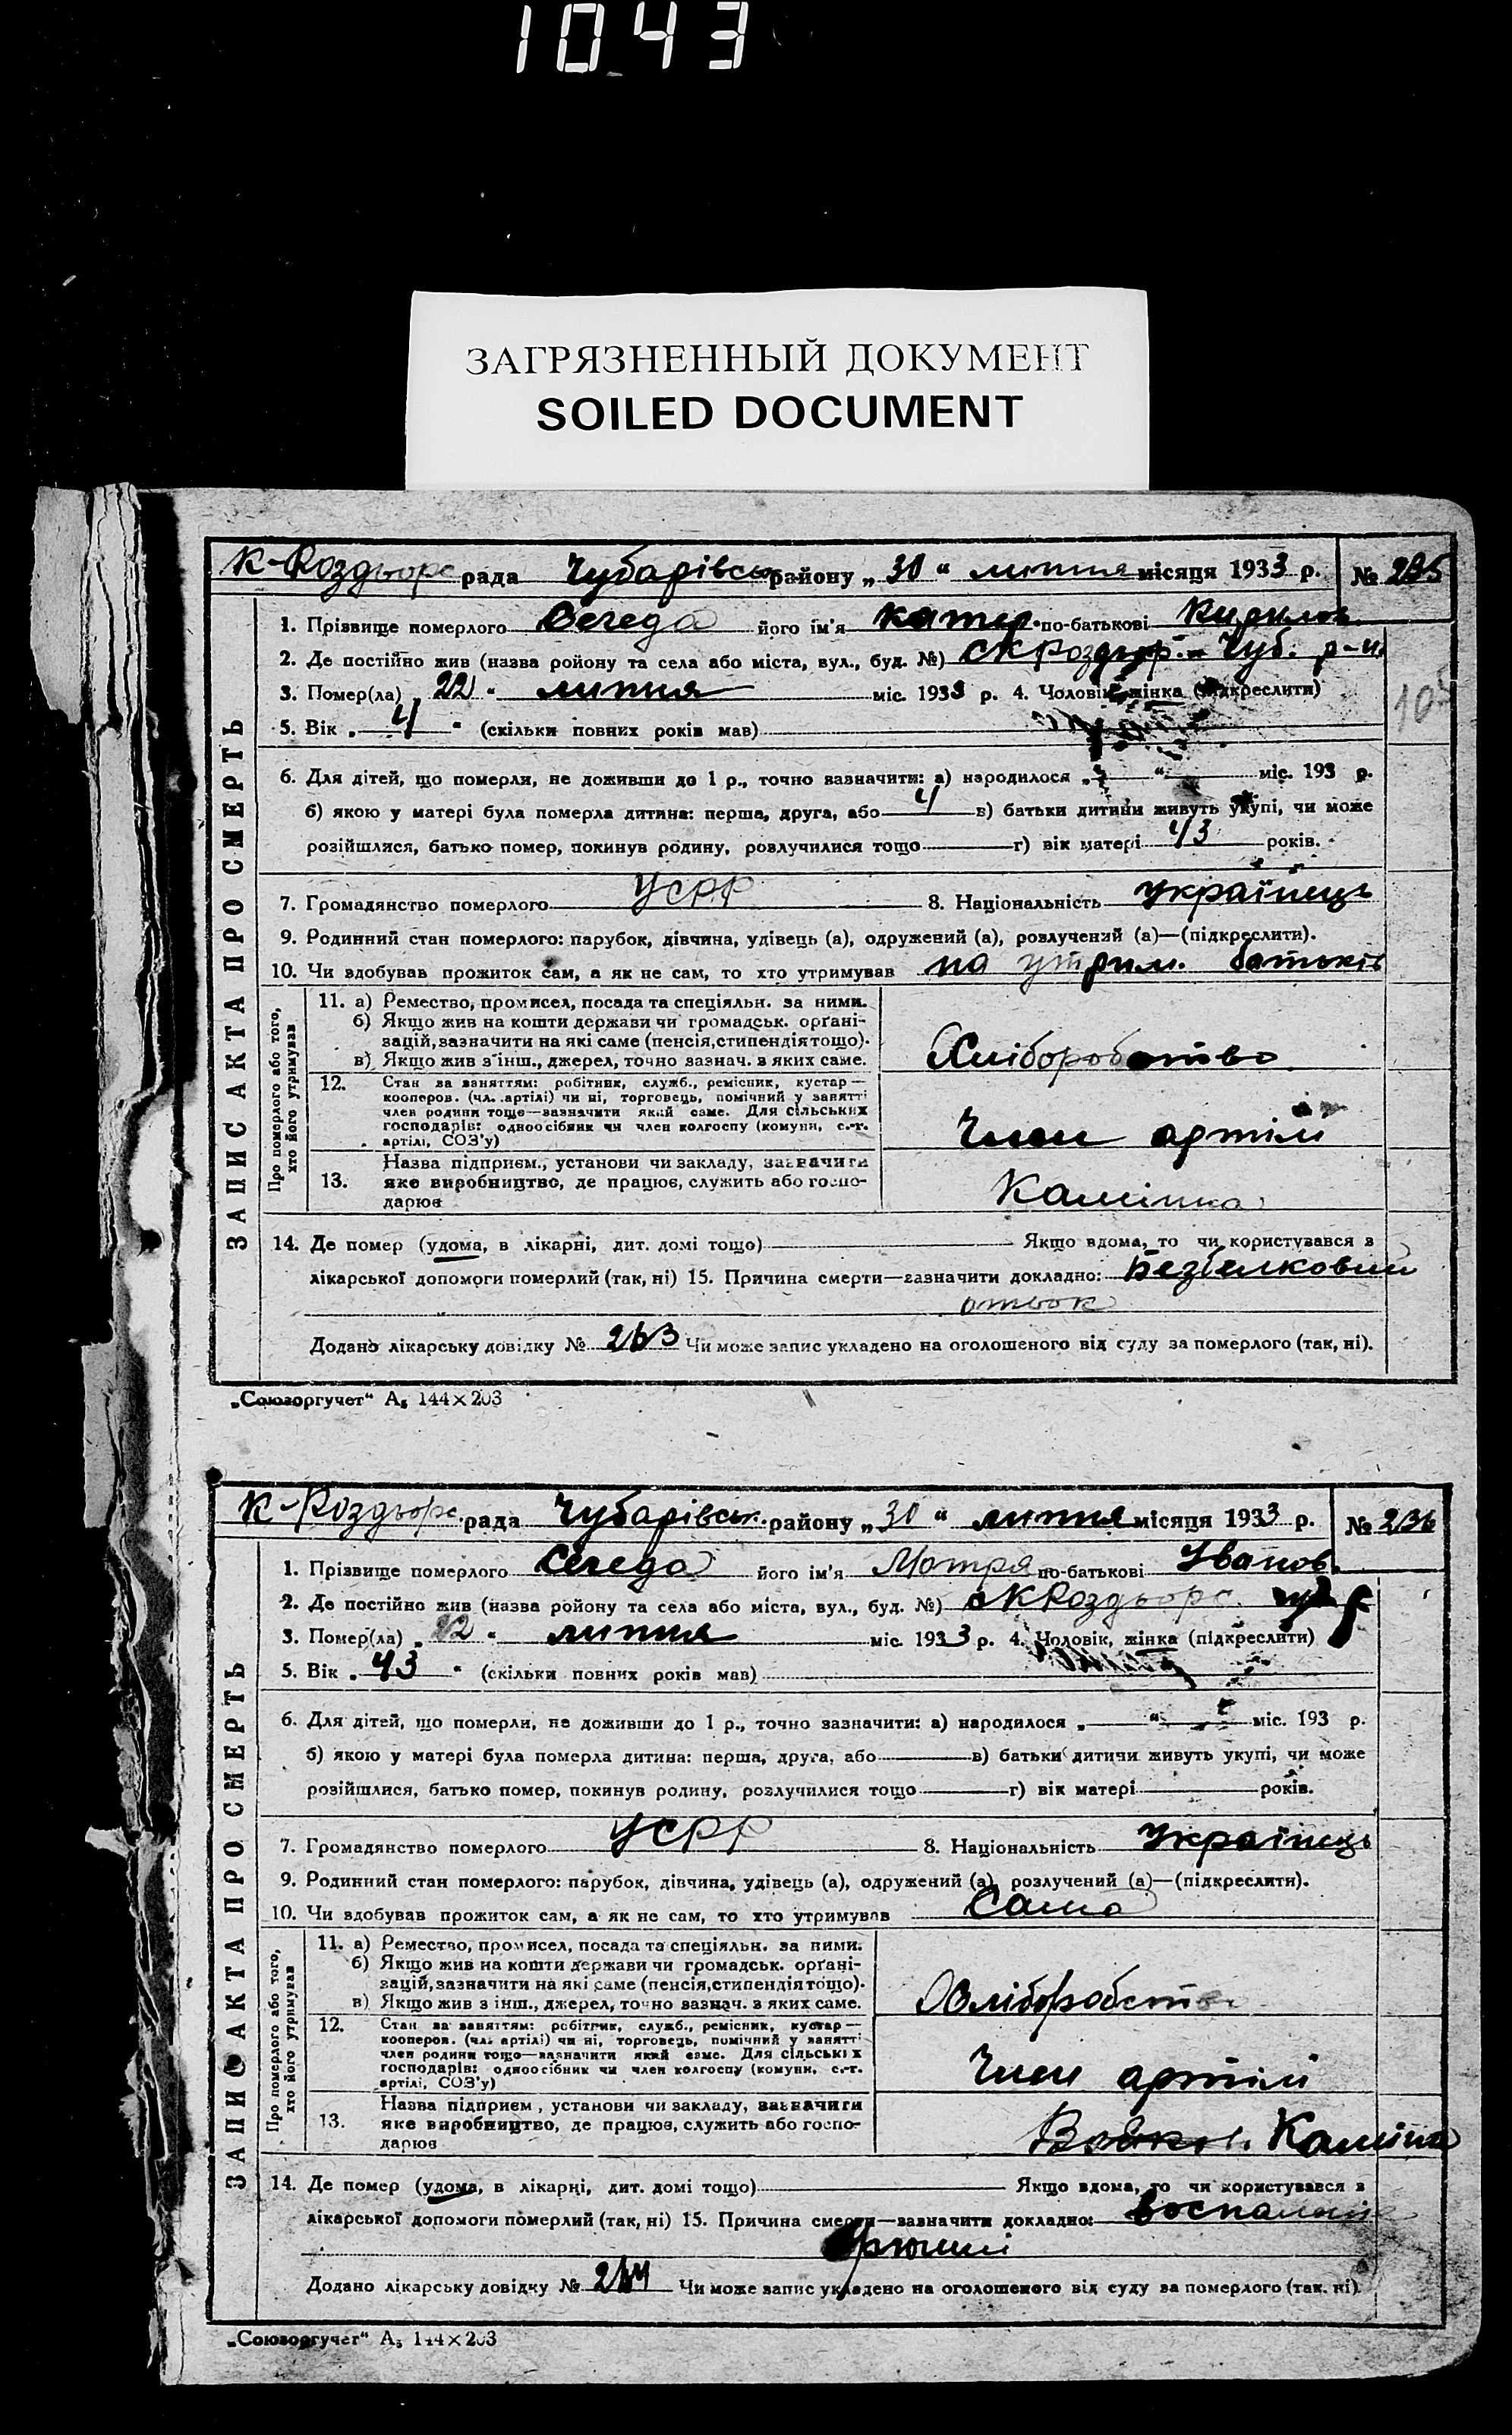 1043
ЗАГРЯЗНЕННЫЙ ДОКУМЕНТ
SOILED DOCUMENT
К-Роздорс рада Чубарівськ району „30“ липня місяця 1933 р. № 235
1. Прізвище померлого Сегеда його ім'я Катер. по-батькові Кирилов
2. Де постійно жив (назва ройону та села або міста, вул., буд. №) с К Роздор. Чуб. р-н.
3. Помер(ла) „22“ липня міс. 1933 р. 4. Чоловік, жінка (підкреслити)
5. Вік „4“ (скільки повних років мав)
6. Для дітей, що померли, не доживши до 1 р., точно зазначити: а) народилося „ “ міс. 193 р.
б) якою у матері була померла дитина: перша, друга, або 4 в) батьки дитини живуть укупі, чи може
розійшлися, батько помер, покинув родину, розлучилися тощо г) вік матері 43 років.
7. Громадянство померлого УСРР 8. Національність Українець
9. Родинний стан померлого: парубок, дівчина, удівець (а), одружений (а), розлучений (а)—(підкреслити).
10. Чи здобував прожиток сам, а як не сам, то хто утримував на утрим. батьків
ЗАПИС АКТА ПРО СМЕРТЬ
Про померлого або того, хто його утримував
11. а) Ремество, промисел, посада та спеціяльн. за ними.
б) Якщо жив на кошти держави чи громадськ. орґані-
зацій, зазначити на які саме (пенсія, стипендія тощо).
в) Якщо жив з інш., джерел, точно зазнач. з яких саме.
Хліборобство
12. Стан за заняттям: робітник, служб., ремісник, кустар—
кооперов. (чл. артілі) чи ні, торговець, помічний у занятті
член родини тощо—зазначити який саме. Для сільських
господарів: одноосібник чи член колгоспу (комуни, с.-г.
артілі, СОЗ'у)
Член артілі
13. Назва підприєм., установи чи закладу, зазначити
яке виробництво, де працює, служить або госпо-
дарює
Камінка
14. Де помер (удома, в лікарні, дит. домі тощо) Якщо вдома, то чи користувався з
лікарської допомоги померлий (так, ні) 15. Причина смерти—зазначити докладно: Безбелковий
отьок
Додано лікарську довідку № 263 Чи може запис укладено на оголошеного від суду за померлого (так, ні).
„Союзоргучет“ А₅ 144×203
К-Роздорс. рада Чубарівськ. району „30“ липня місяця 1933 р. № 236
1. Прізвище померлого Сегеда його ім'я Мотря по-батькові Іванов.
2. Де постійно жив (назва ройону та села або міста, вул., буд. №) с К Роздорс.
3. Помер(ла) „22“ липня міс. 1933 р. 4. Чоловік, жінка (підкреслити)
5. Вік „43“ (скільки повних років мав)
6. Для дітей, що померли, не доживши до 1 р., точно зазначити: а) народилося „ “ міс. 193 р.
б) якою у матері була померла дитина: перша, друга, або в) батьки дитини живуть укупі, чи може
розійшлися, батько помер, покинув родину, розлучилися тощо г) вік матері років.
7. Громадянство померлого УСРР 8. Національність Українець
9. Родинний стан померлого: парубок, дівчина, удівець (а), одружений (а), розлучений (а)—(підкреслити).
10. Чи здобував прожиток сам, а як не сам, то хто утримував Сама
ЗАПИС АКТА ПРО СМЕРТЬ
Про померлого або того, хто його утримував
11. а) Ремество, промисел, посада та спеціяльн. за ними.
б) Якщо жив на кошти держави чи громадськ. орґані-
зацій, зазначити на які саме (пенсія, стипендія тощо).
в) Якщо жив з інш., джерел, точно зазнач. з яких саме.
Хліборобств
12. Стан за заняттям: робітник, служб., ремісник, кустар—
кооперов. (чл. артілі) чи ні, торговець, помічний у занятті
член родини тощо—зазначити який саме. Для сільських
господарів: одноосібник чи член колгоспу (комуни, с.-г.
артілі, СОЗ'у)
Член артілі
13. Назва підприєм., установи чи закладу, зазначити
яке виробництво, де працює, служить або госпо-
дарює
Камінка
14. Де помер (удома, в лікарні, дит. домі тощо) Якщо вдома, то чи користувався з
лікарської допомоги померлий (так, ні) 15. Причина смерти—зазначити докладно:
Додано лікарську довідку № 264 Чи може запис укладено на оголошеного від суду за померлого (так, ні)
„Союзоргучет“ А₅ 144×203